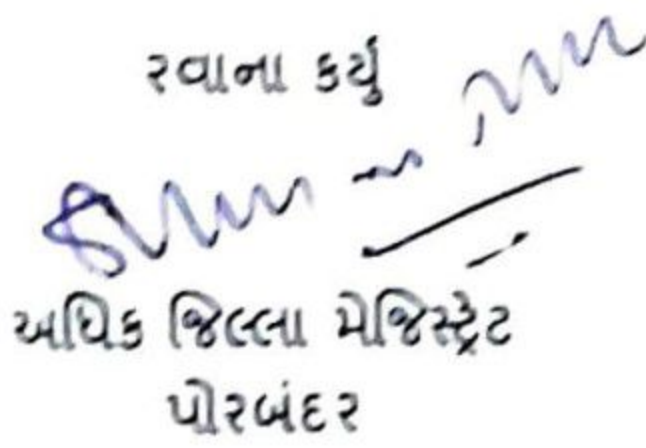 રવાના કર્યું
અધિક જિલ્લા મેજિસ્ટ્રેટ
પોરબંદર